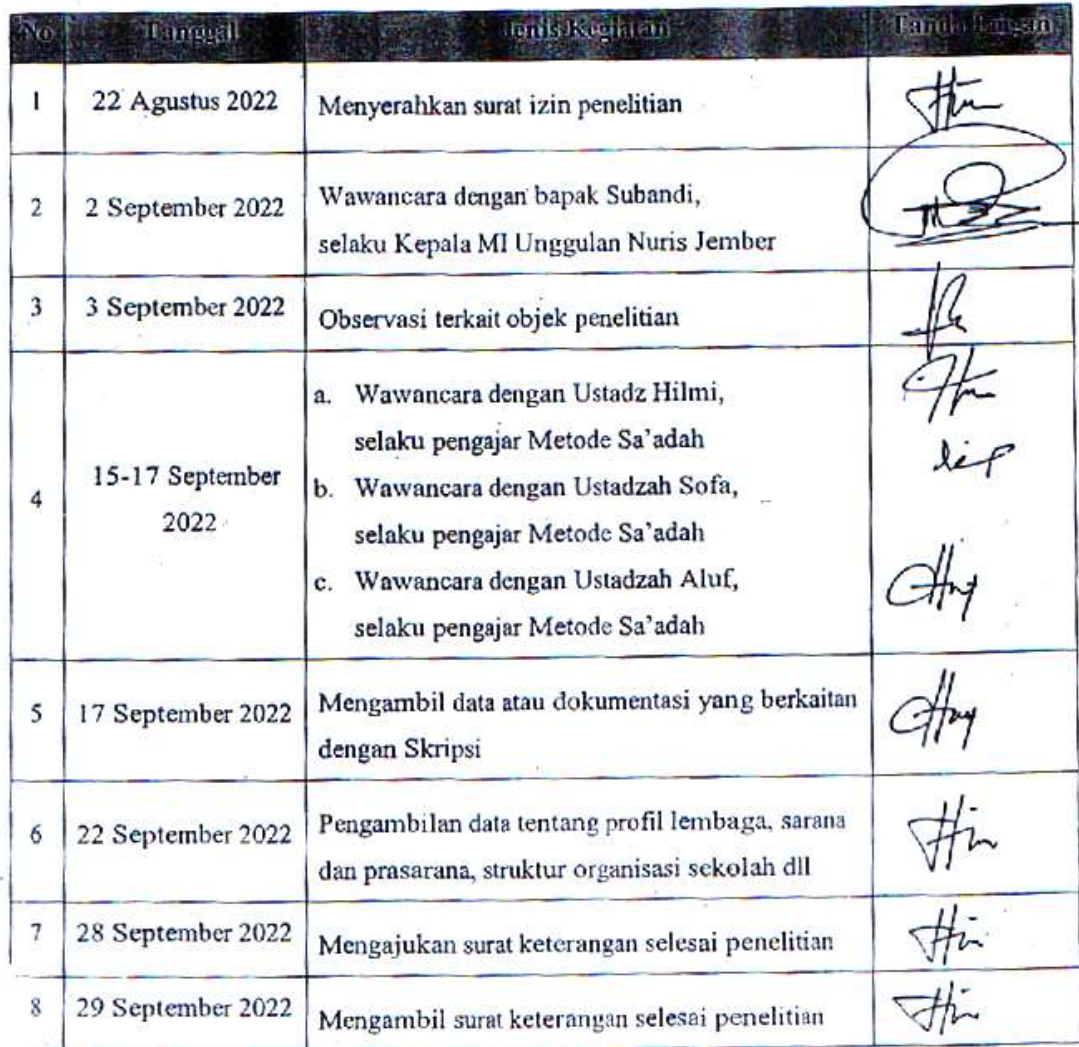 No Tanggal Jenis Kegiatan Tanda Tangan
1 22 Agustus 2022 Menyerahkan surat izin penelitian
2 2 September 2022 Wawancara dengan bapak Subandi,
selaku Kepala MI Unggulan Nuris Jember
3 3 September 2022 Observasi terkait objek penelitian
4 15-17 September
2022
a. Wawancara dengan Ustadz Hilmi,
selaku pengajar Metode Sa'adah
b. Wawancara dengan Ustadzah Sofa,
selaku pengajar Metode Sa'adah
c. Wawancara dengan Ustadzah Aluf,
selaku pengajar Metode Sa'adah
5 17 September 2022 Mengambil data atau dokumentasi yang berkaitan
dengan Skripsi
6 22 September 2022 Pengambilan data tentang profil lembaga, sarana
dan prasarana, struktur organisasi sekolah dll
7 28 September 2022 Mengajukan surat keterangan selesai penelitian
8 29 September 2022 Mengambil surat keterangan selesai penelitian